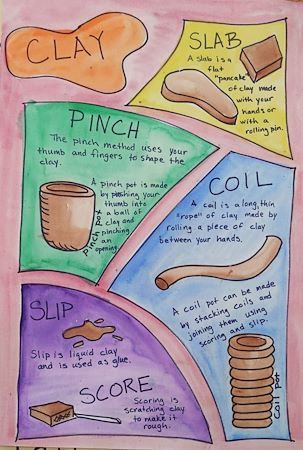 CLAY
SLAB
A slab is a
flat
"pancake"
of clay made
with your
hands or
with a
rolling pin.
PINCH
The pinch method uses your
thumb and fingers to shape the
clay.
A pinch pot is made
by pushing your
thumb into
a ball of
clay and
pinching
an
opening.
pinch pot
COIL
A coil is a long, thin
"rope" of clay made by
rolling a piece of clay
between your hands.
A coil pot can be made
by stacking coils and
joining them using
scoring and slip.
coil pot
SLIP
Slip is liquid clay
and is used as glue.
SCORE
Scoring is
scratching clay
to make it
rough.